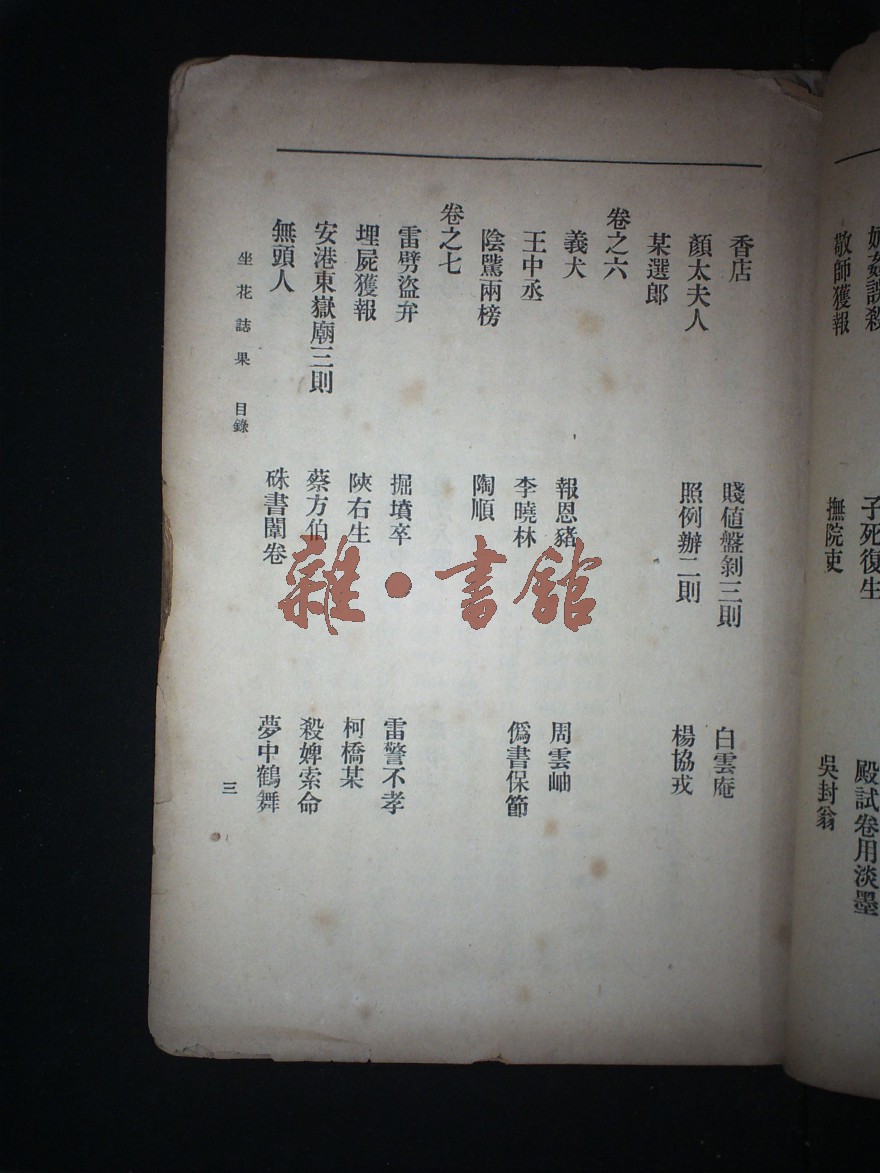 姦誤殺 子死復生 殿試卷用淡墨
敬師獲報 撫院吏 吳封翁
香店 賤値盤剝三則 白雲庵
顏太夫人 照例辦二則 楊協戎
某選郎
卷之六
義犬 報恩豬 周雲岫
王中丞 李曉林 僞書保節
陰騭兩榜 陶順
卷之七
雷劈盜弁 掘墳卒 雷警不孝
埋屍獲報 陝右生 柯橋某
安港東嶽廟三則 蔡方伯 殺婢索命
無頭人 硃書闈卷 夢中鶴舞
坐花誌果 目錄 三
雜·書館